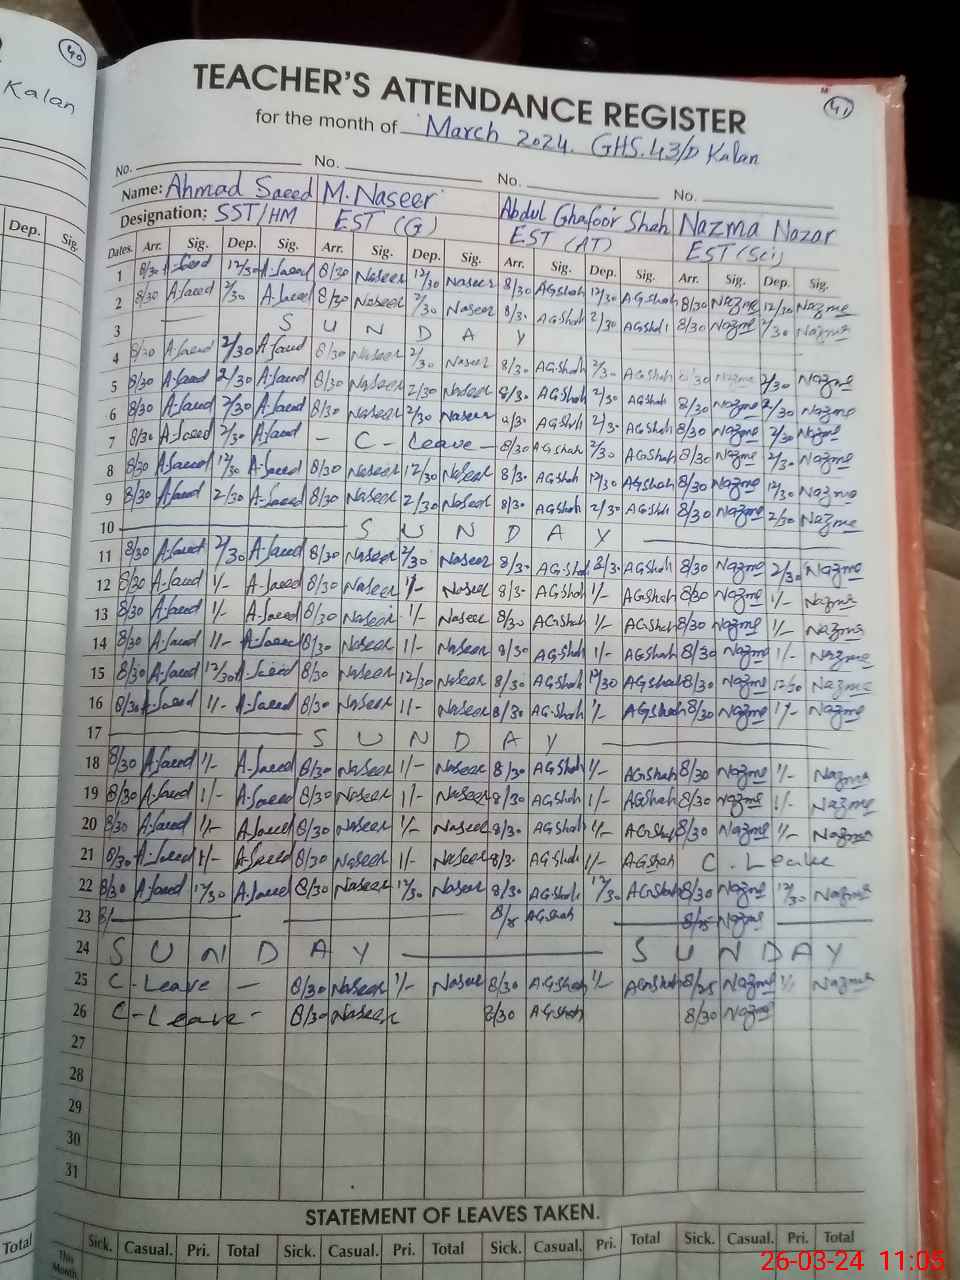 40
Kalan
Dep. Sig.
41
TEACHER'S ATTENDANCE REGISTER
for the month of March 2024. GHS.43/D Kalan
No. No. No. No.
Name: Ahmad Saeed M. Naseer Abdul Ghafoor Shah Nazma Nazar
Designation: SST/HM EST (G) EST (AT) EST (Sci)
Dates. Arr. Sig. Dep. Sig. Arr. Sig. Dep. Sig. Arr. Sig. Dep. Sig. Arr. Sig. Dep. Sig.
1 8/30 A.Saeed 12/30 A.Saeed 8/30 Naseer 12/30 Naseer 8/30 AGShah 12/30 AGShah 8/30 Nazma 12/30 Nazma
2 8/30 A.Saeed 2/30 A.Saeed 8/30 Naseer 2/30 Naseer 8/30 AGShah 2/30 AGShah 8/30 Nazma 2/30 Nazma
3 SUNDAY
4 8/30 A.Saeed 2/30 A.Saeed 8/30 Naseer 2/30 Naseer 8/30 AGShah 2/30 AGShah 8/30 Nazma 2/30 Nazma
5 8/30 A.Saeed 2/30 A.Saeed 8/30 Naseer 2/30 Naseer 8/30 AGShah 2/30 AGShah 8/30 Nazma 2/30 Nazma
6 8/30 A.Saeed 2/30 A.Saeed 8/30 Naseer 2/30 Naseer 8/30 AGShah 2/30 AGShah 8/30 Nazma 2/30 Nazma
7 8/30 A.Saeed 2/30 A.Saeed - C - Leave - 8/30 AGShah 2/30 AGShah 8/30 Nazma 2/30 Nazma
8 8/30 A.Saeed 12/30 A.Saeed 8/30 Naseer 12/30 Naseer 8/30 AGShah 12/30 AGShah 8/30 Nazma 12/30 Nazma
9 8/30 A.Saeed 2/30 A.Saeed 8/30 Naseer 2/30 Naseer 8/30 AGShah 2/30 AGShah 8/30 Nazma 2/30 Nazma
10 SUNDAY
11 8/30 A.Saeed 2/30 A.Saeed 8/30 Naseer 2/30 Naseer 8/30 AGShah 2/30 AGShah 8/30 Nazma 2/30 Nazma
12 8/30 A.Saeed 1/- A.Saeed 8/30 Naseer 1/- Naseer 8/30 AGShah 1/- AGShah 8/30 Nazma 1/- Nazma
13 8/30 A.Saeed 1/- A.Saeed 8/30 Naseer 1/- Naseer 8/30 AGShah 1/- AGShah 8/30 Nazma 1/- Nazma
14 8/30 A.Saeed 1/- A.Saeed 8/30 Naseer 1/- Naseer 8/30 AGShah 1/- AGShah 8/30 Nazma 1/- Nazma
15 8/30 A.Saeed 12/30 A.Saeed 8/30 Naseer 12/30 Naseer 8/30 AGShah 12/30 AGShah 8/30 Nazma 12/30 Nazma
16 8/30 A.Saeed 1/- A.Saeed 8/30 Naseer 1/- Naseer 8/30 AGShah 1/- AGShah 8/30 Nazma 1/- Nazma
17 SUNDAY
18 8/30 A.Saeed 1/- A.Saeed 8/30 Naseer 1/- Naseer 8/30 AGShah 1/- AGShah 8/30 Nazma 1/- Nazma
19 8/30 A.Saeed 1/- A.Saeed 8/30 Naseer 1/- Naseer 8/30 AGShah 1/- AGShah 8/30 Nazma 1/- Nazma
20 8/30 A.Saeed 1/- A.Saeed 8/30 Naseer 1/- Naseer 8/30 AGShah 1/- AGShah 8/30 Nazma 1/- Nazma
21 8/30 A.Saeed 1/- A.Saeed 8/30 Naseer 1/- Naseer 8/30 AGShah 1/- AGShah C. Leave
22 8/30 A.Saeed 12/30 A.Saeed 8/30 Naseer 12/30 Naseer 8/30 AGShah 12/30 AGShah 8/30 Nazma 12/30 Nazma
23 8/ AGShah 8/25 Nazma
24 SUNDAY SUNDAY
25 C - Leave - 8/30 Naseer 1/- Naseer 8/30 AGShah 1/- AGShah 8/25 Nazma 1/- Nazma
26 C - Leave - 8/30 Naseer 8/30 AGShah 8/30 Nazma
27
28
29
30
31
STATEMENT OF LEAVES TAKEN.
Total
This Month
Sick. Casual. Pri. Total Sick. Casual. Pri. Total Sick. Casual. Pri. Total Sick. Casual. Pri. Total
26-03-24 11:05